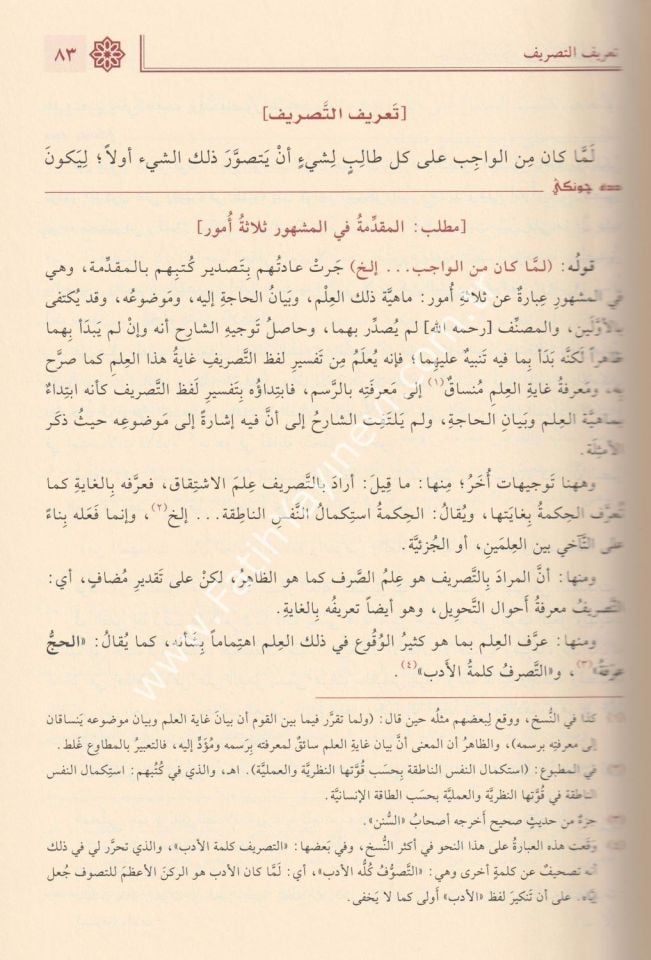 تعريف التصريف
٨٣
[تَعريف التَّصريف]
لَمَّا كان مِن الواجِب على كل طالِبٍ لِشيءٍ أنْ يَتصوَّرَ ذلك الشيء أولاً؛ لِيَكونَ
جونكي
[مطلب: المقدِّمةُ في المشهور ثلاثةُ أُمور]
قولُه: (لـمَّا كان من الواجب... إلخ) جَرتْ عادتُهم بِتَصدير كُتبِهم بالـمُقدِّمة، وهي
في المشهورِ عِبارةٌ عن ثلاثةِ أُمور: ماهيَّة ذلك العِلْم، وبَيانُ الحاجةِ إليه، ومَوضوعُه، وقد يُكتفى
بالأوَّلَين، والمصنِّف [رحمه الله] لم يُصدِّر بهما، وحاصلُ تَوجيهِ الشارح أنه وإنْ لم يَبدَأ بِهما
ظاهراً لكنَّه بَدَأ بِما فيه تَنبيهٌ عليهِما؛ فإنه يُعلَمُ مِن تَفسيرِ لفظ التَّصريفِ غايةُ هذا العِلم كما صرَّح
بِه، ومَعرفةُ غايةِ العِلمِ مُنساقٌ(١) إلى مَعرفتِه بِالرَّسم، فابتِداؤُه بِتَفسيرِ لَفظ التَّصريف كأنه ابتِداءٌ
بماهيَّة العِلم وبَيانِ الحاجة، ولم يَلتَفِت الشارحُ إلى أنَّ فيه إشارةً إلى مَوضوعِه حيثُ ذكَر
الأمثِلة.
وههنا تَوجيهات أُخَرُ؛ مِنها: ما قِيلَ: أرادَ بِالتَّصريف عِلمَ الاشتِقاق، فعرَّفه بِالغايةِ كما
تُعرَّف الحِكمةُ بِغايَتِها، ويُقالُ: الحِكمةُ استِكمالُ النَّفسِ الناطِقة... إلخ(٢)، وإنما فَعَله بِناءً
على التَّآخي بين العِلمَين، أو الجُزئيَّة.
ومنها: أنَّ المرادَ بِالتَّصريف هو عِلمُ الصَّرف كما هو الظاهِرُ، لكنْ على تَقديرِ مُضافٍ، أي:
التَّصريفُ مَعرفة أَحوال التَّحويل، وهو أيضاً تَعريفُه بِالغايةِ.
ومنها: عرَّف العِلم بِما هو كثيرُ الوُقوعِ في ذلك العِلم اهتِماماً بِشَأنِه، كما يُقالُ: «الحجُّ
عرَفةُ»(٣)، و«التَّصرف كلمةُ الأدب»(٤).
(١) كذا في النُّسخ، ووقع لِبعضهم مثلُه حين قال: (ولما تقرَّر فيما بين القوم أن بيانَ غاية العلم وبيان موضوعه يَنساقان
إلى معرفتِه برسمه)، والظاهرُ أن المعنى أنَّ بيان غاية العلم سائقٌ لمعرفته برَسمه ومُؤدٍّ إليه، فالتعبيرُ بالمطاوع غلط.
(٢) في المطبوع: (استكمال النفس الناطقة بِحسَب قُوَّتها النظريَّة والعمليَّة). اهـ، والذي في كُتُبهم: استكمال النفس
الناطقة في قوَّتها النظريَّة والعمليَّة بحسَب الطاقة الإنسانيَّة.
(٣) جزءٌ من حديثٍ صحيح أخرجه أصحابُ «السُّنن».
(٤) وقَعت هذه العبارةُ على هذا النحو في أكثر النُّسخ، وفي بَعضها: «التصريف كلمة الأدب»، والذي تحرَّر لي في ذلك
أنه تصحيفٌ عن كلمةٍ أخرى وهي: «التَّصوُّف كُلُّه الأدب»، أي: لَمَّا كان الأدب هو الركنَ الأعظمَ للتصوف جُعل
إيَّاه. على أن تَنكيرَ لفظ «الأدب» أَولى كما لا يَخفى.
www.Fatihyayinevi.com.tr